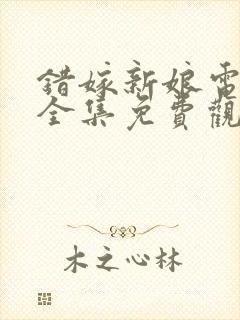 錯嫁新娘電
全集免費觀
木之心林